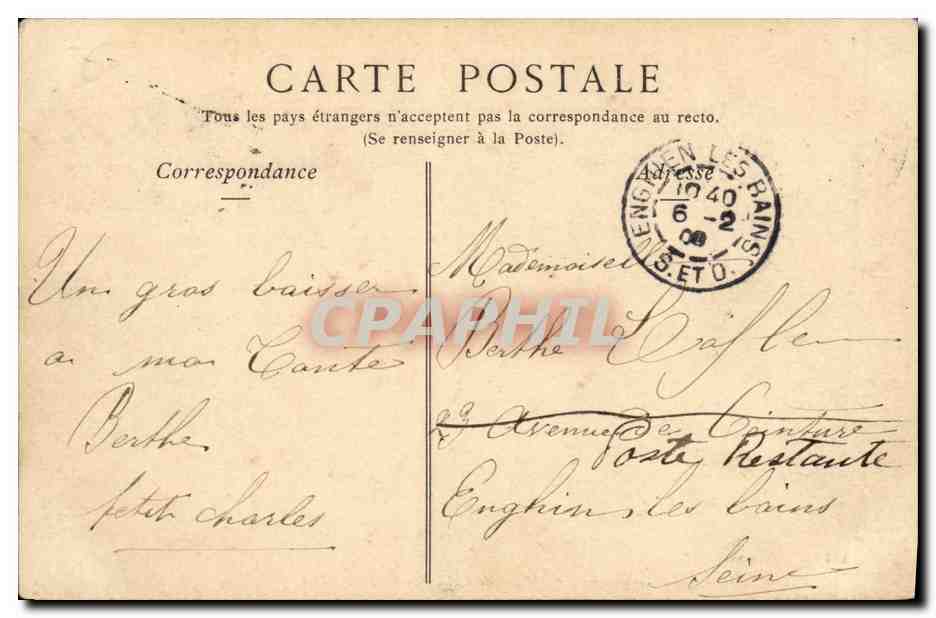 CARTE POSTALE
Tous les pays étrangers n'acceptent pas la correspondance au recto.
(Se renseigner à la Poste).
Correspondance
Adresse
ENGHIEN LES BAINS
10 40
6 - 2
S. ET O.
Un gros baisser
a ma Tante
Berthe
petit charles
Mademoisel
Berthe
23 Avenue de Ceinture
Poste Restante
Enghin les bains
Seine
CPAPHIL